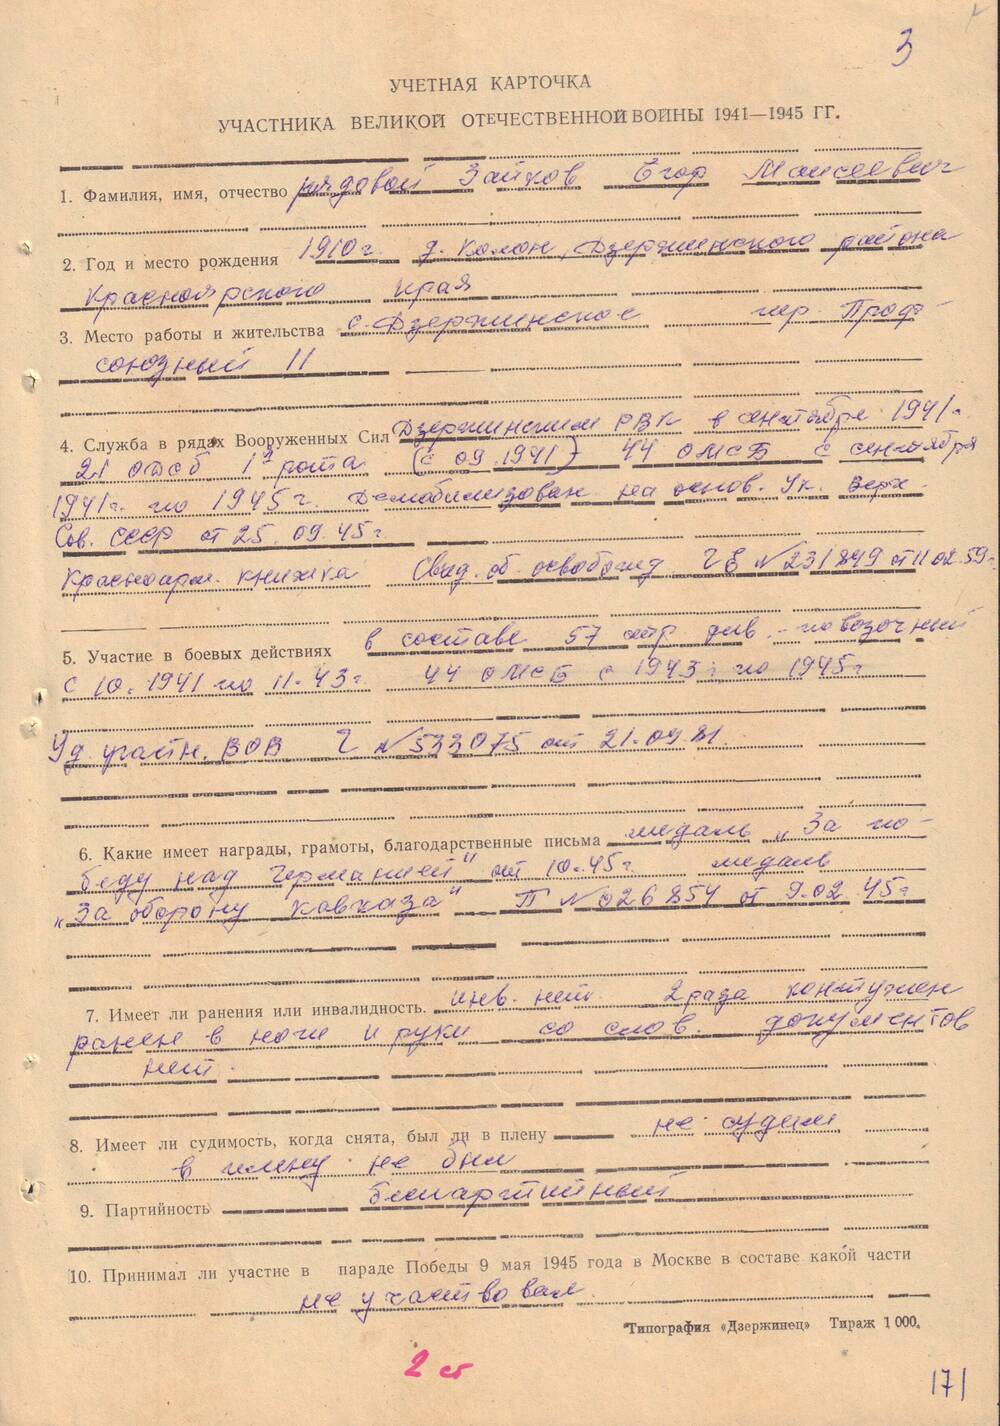 3
УЧЕТНАЯ КАРТОЧКА
УЧАСТНИКА ВЕЛИКОЙ ОТЕЧЕСТВЕННОЙ ВОЙНЫ 1941—1945 ГГ.
1. Фамилия, имя, отчество рядовой Зайков Егор Моисеевич
2. Год и место рождения 1910 г. д. Колон, Дзержинского района
Красноярского края
3. Место работы и жительства с. Дзержинское пер. Проф
союзный 11
4. Служба в рядах Вооруженных Сил Дзержинским РВК в сентябре 1941 г.
21 ОДСБ 1я рота (с 09.1941) 44 ОМСБ с сентября
1941 г. по 1945 г. Демобилизован на основ. Ук. Верх.
Сов. СССР от 25.09.45 г.
Красноарм. книжка Свид. об. освобожд. ГБ № 231849 от 11.02.59 г.
5. Участие в боевых действиях в составе 57 стр див. - повозочный
с 10.1941 по 11.43 г 44 ОМСБ с 1943 г по 1945 г
Уд. участн. ВОВ Г № 533075 от 21.09.81.
6. Какие имеет награды, грамоты, благодарственные письма медаль „За по-
беду над Германией" от 10.45 г. медаль
„За оборону Кавказа" П № 026854 от 9.02.45 г
7. Имеет ли ранения или инвалидность. инв. нет. 2 раза контужен
ранен в ноги и руки со слов. документов
нет.
8. Имеет ли судимость, когда снята, был ли в плену не судим
в плену не был
9. Партийность беспартийный
10. Принимал ли участие в параде Победы 9 мая 1945 года в Москве в составе какой части
не участвовал.
Типография «Дзержинец» Тираж 1 000.
2 ст
171